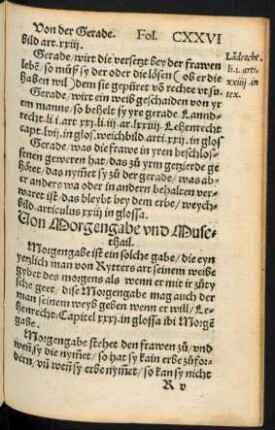 Von der Gerade. Fol. CXXVI
bild art.xxiij.
Gerade/ wirt die versetzt bey der frawen
lebē/ so můß sy der oder die lösen (ob er die
haben wil) dem sie gepüret vō rechte vt su.
Gerade/ wirt ein weiß geschaiden von yr
em manne/ so behelt sy yre gerade Lannd-
recht.li i.art xxj.li.iij ar.lxxiiij Lehenrecht
capt.lvij.in glos.weichbild arti.xxij.in glos
Gerade/ was die frawe in yren beschlos-
senen geweren hat/ das zů yrm getzierde ge
höret/ das nymēt sy zů der gerade/ was ab-
er anders wa oder in andern behalten ver-
waret ist das bleybt bey dem erbe/ weych-
bild.articulus xxij in glossa.
Von Morgengabe vnd Muse-
thail.
Morgengabe ist ein solche gabe/ die eyn
yetzlich man von Rytters art seinem weibe
gybet des morgens als wenn er mit ir zů ty
sche geet/ dise Morgengabe mag auch der
man seinem weyb geben wenn er will/ Le-
henrecht.Capitel xxxj.in glossa ibi Morgē
gabe.
Morgengabe stehet den frawen zů/ vnd
weñ sy die nyṁet/ so hat sy kain erbe zů for-
dern/ vñ weñ sy erbe nyṁet/ so kan sy nicht
R v
Lādrecht.
li.i. arti.
xxiiij in
tex.